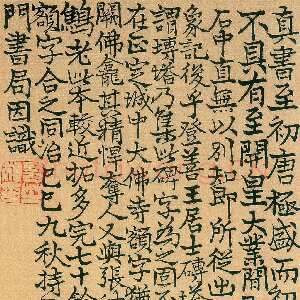 真書至初唐極盛而初
不具有至開皇大業間
石中直無以別知即所從出
象記後乎登善王居士磚
謂塼塔乃集此碑字為之固
在正定城中大佛寺額字猶
闕佛龕其精悍奪人又與張
鶴老此本較近拓多完七十餘
額字合之同治己巳九秋持
門書局因識